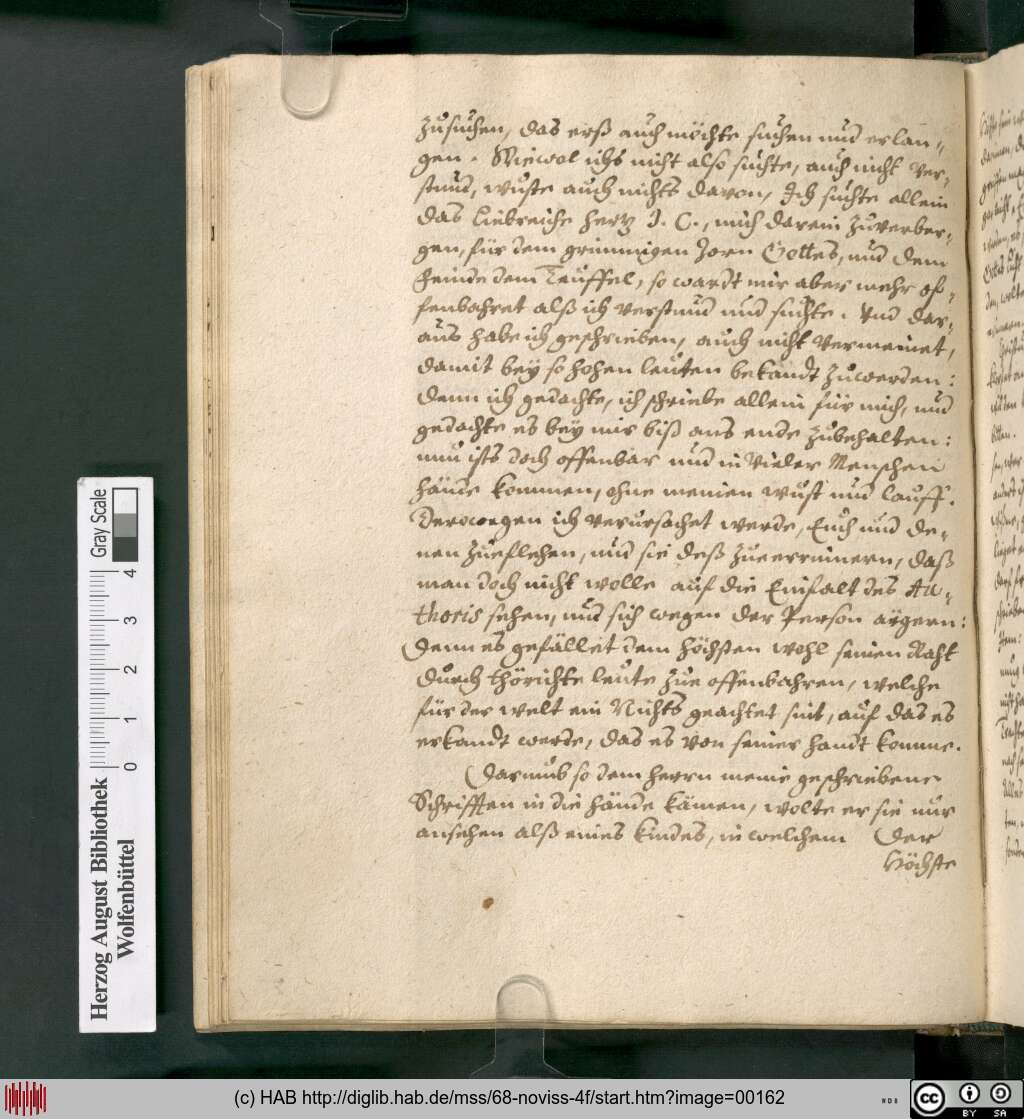 zusuchen, das erß auch möchte suchen und erlan-
gen. Wiewol ichs nicht also suchte, auch nicht ver-
stund, wuste auch nichts davon, Ich suchte allein
das Liebreiche hertz J. C., mich darein zuverber-
gen, für dem grimmigen Zorn Gottes, und dem
Feinde dem Teuffel, so wardt mir aber mehr of-
fenbahret alß ich verstund und suchte. Und dar-
aus habe ich geschrieben, auch nicht vermeinet,
damit bey so hohen leuten bekandt zuwerden:
denn ich gedachte, ich schriebe allein für mich, und
gedachte es bey mir biß ans ende zubehalten:
nun ists doch offenbar und in vieler Menschen
hände kommen, ohne meinen wust und lauff.
Derowegen ich verursachet werde, Euch und de-
nen zueflehen, und sie deß zueerinnern, daß
man doch nicht wolle auf die Einfalt des Au-
thoris sehen, und sich wegen der Person ärgern:
Denn es gefället dem höchsten wohl seinen Raht
durch thörichte leute zue offenbahren, welche
für der welt ein Nichts geachtet seint, auf das es
erkandt werde, das es von seiner handt komme.
Darumb so dem herrn meine geschriebene
Schrifften in die hände kämen, wolte er sie nur
ansehen alß eines Kindes, in welchem der
Höchste
Gray Scale
4
3
2
1
0
Herzog August Bibliothek
Wolfenbüttel
(c) HAB http://diglib.hab.de/mss/68-noviss-4f/start.htm?image=00162
WDB
cc
BY SA